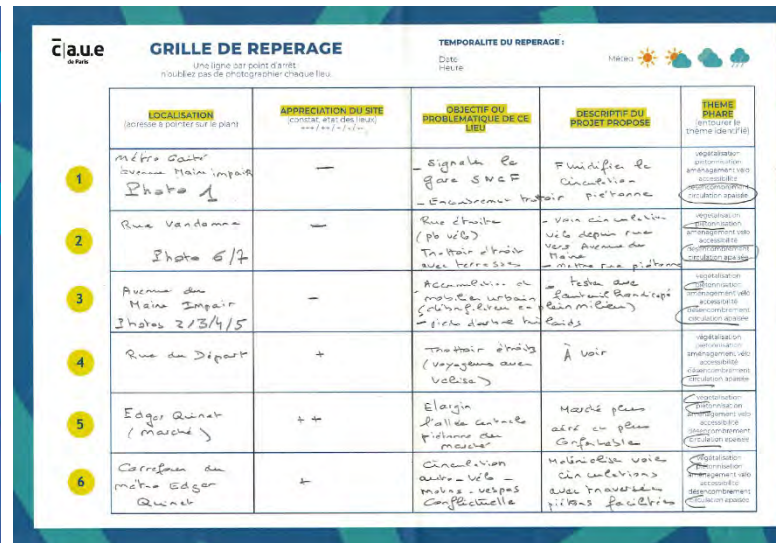 c|a.u.e
de Paris
GRILLE DE REPERAGE
Une ligne par point d'arrêt
n'oubliez pas de photographier chaque lieu
TEMPORALITE DU REPERAGE :
Date
Heure
Météo
LOCALISATION
(adresse à pointer sur le plan)
APPRECIATION DU SITE
(constat, état des lieux)
OBJECTIF OU
PROBLEMATIQUE DE CE
LIEU
DESCRIPTIF DU
PROJET PROPOSE
THEME
PHARE
(entourer le
thème identifié)
1
Métro Gaité
avenue Maine impair
Photo 1
—
- Signaler la
gare SNCF
- Encombrement trottoir
Fluidifier la
circulation
piétonne
végétalisation
piétonnisation
aménagement vélo
accessibilité
désencombrement
circulation apaisée
2
Rue Vandamme
Photo 6/7
—
Rue étroite
(pb vélo)
Trottoir étroit
avec terrasse
- Voir circulation
vélo depuis rue
vers Avenue du
Maine
- mettre rue piétonne
végétalisation
piétonnisation
aménagement vélo
accessibilité
désencombrement
circulation apaisée
3
Avenue du
Maine Impair
Photos 2/3/4/5
—
Accumulation de
mobilier urbain
(défibrillateur en plein milieu)
- pieds d'arbre
- tester avec
fauteuil handicapé
végétalisation
piétonnisation
aménagement vélo
accessibilité
désencombrement
circulation apaisée
4
Rue du Départ
+
Trottoir étroit
(voyageurs avec
valise)
À voir
végétalisation
piétonnisation
aménagement vélo
accessibilité
désencombrement
circulation apaisée
5
Edgar Quinet
(marché)
++
Elargir
l'allée centrale
piétonne du
marché
Marché plus
aéré et plus
confortable
végétalisation
piétonnisation
aménagement vélo
accessibilité
désencombrement
circulation apaisée
6
Carrefour du
métro Edgar
Quinet
+
Circulation
auto - vélo -
motos - vespas
conflictuelle
Matérialiser voie
circulations
avec traversées
piétons facilitées
végétalisation
piétonnisation
aménagement vélo
accessibilité
désencombrement
circulation apaisée